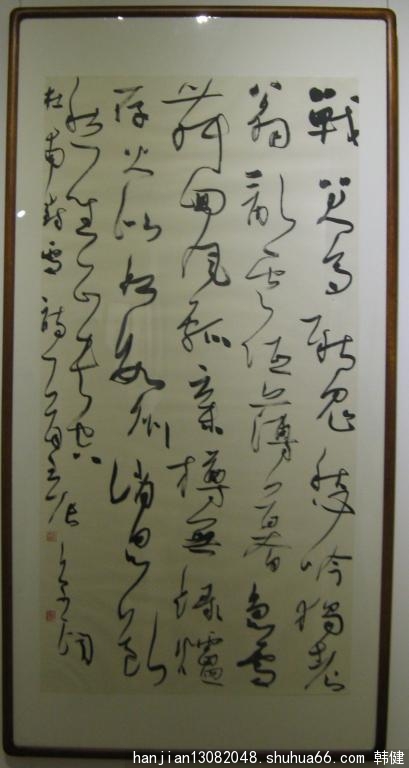 戰哭多新鬼愁吟獨老
翁亂雲低薄暮急雪
舞回風瓢棄樽無綠爐
存火似紅數州消息斷
愁坐正書空
杜甫對雪詩一首
hanjian13082048.shuhua66.com 韩健